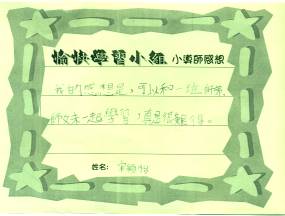 愉快學習小組 小導師感想
我的感想是，可以和一些師弟、
師妹一起學習，真是很難得。
姓名: